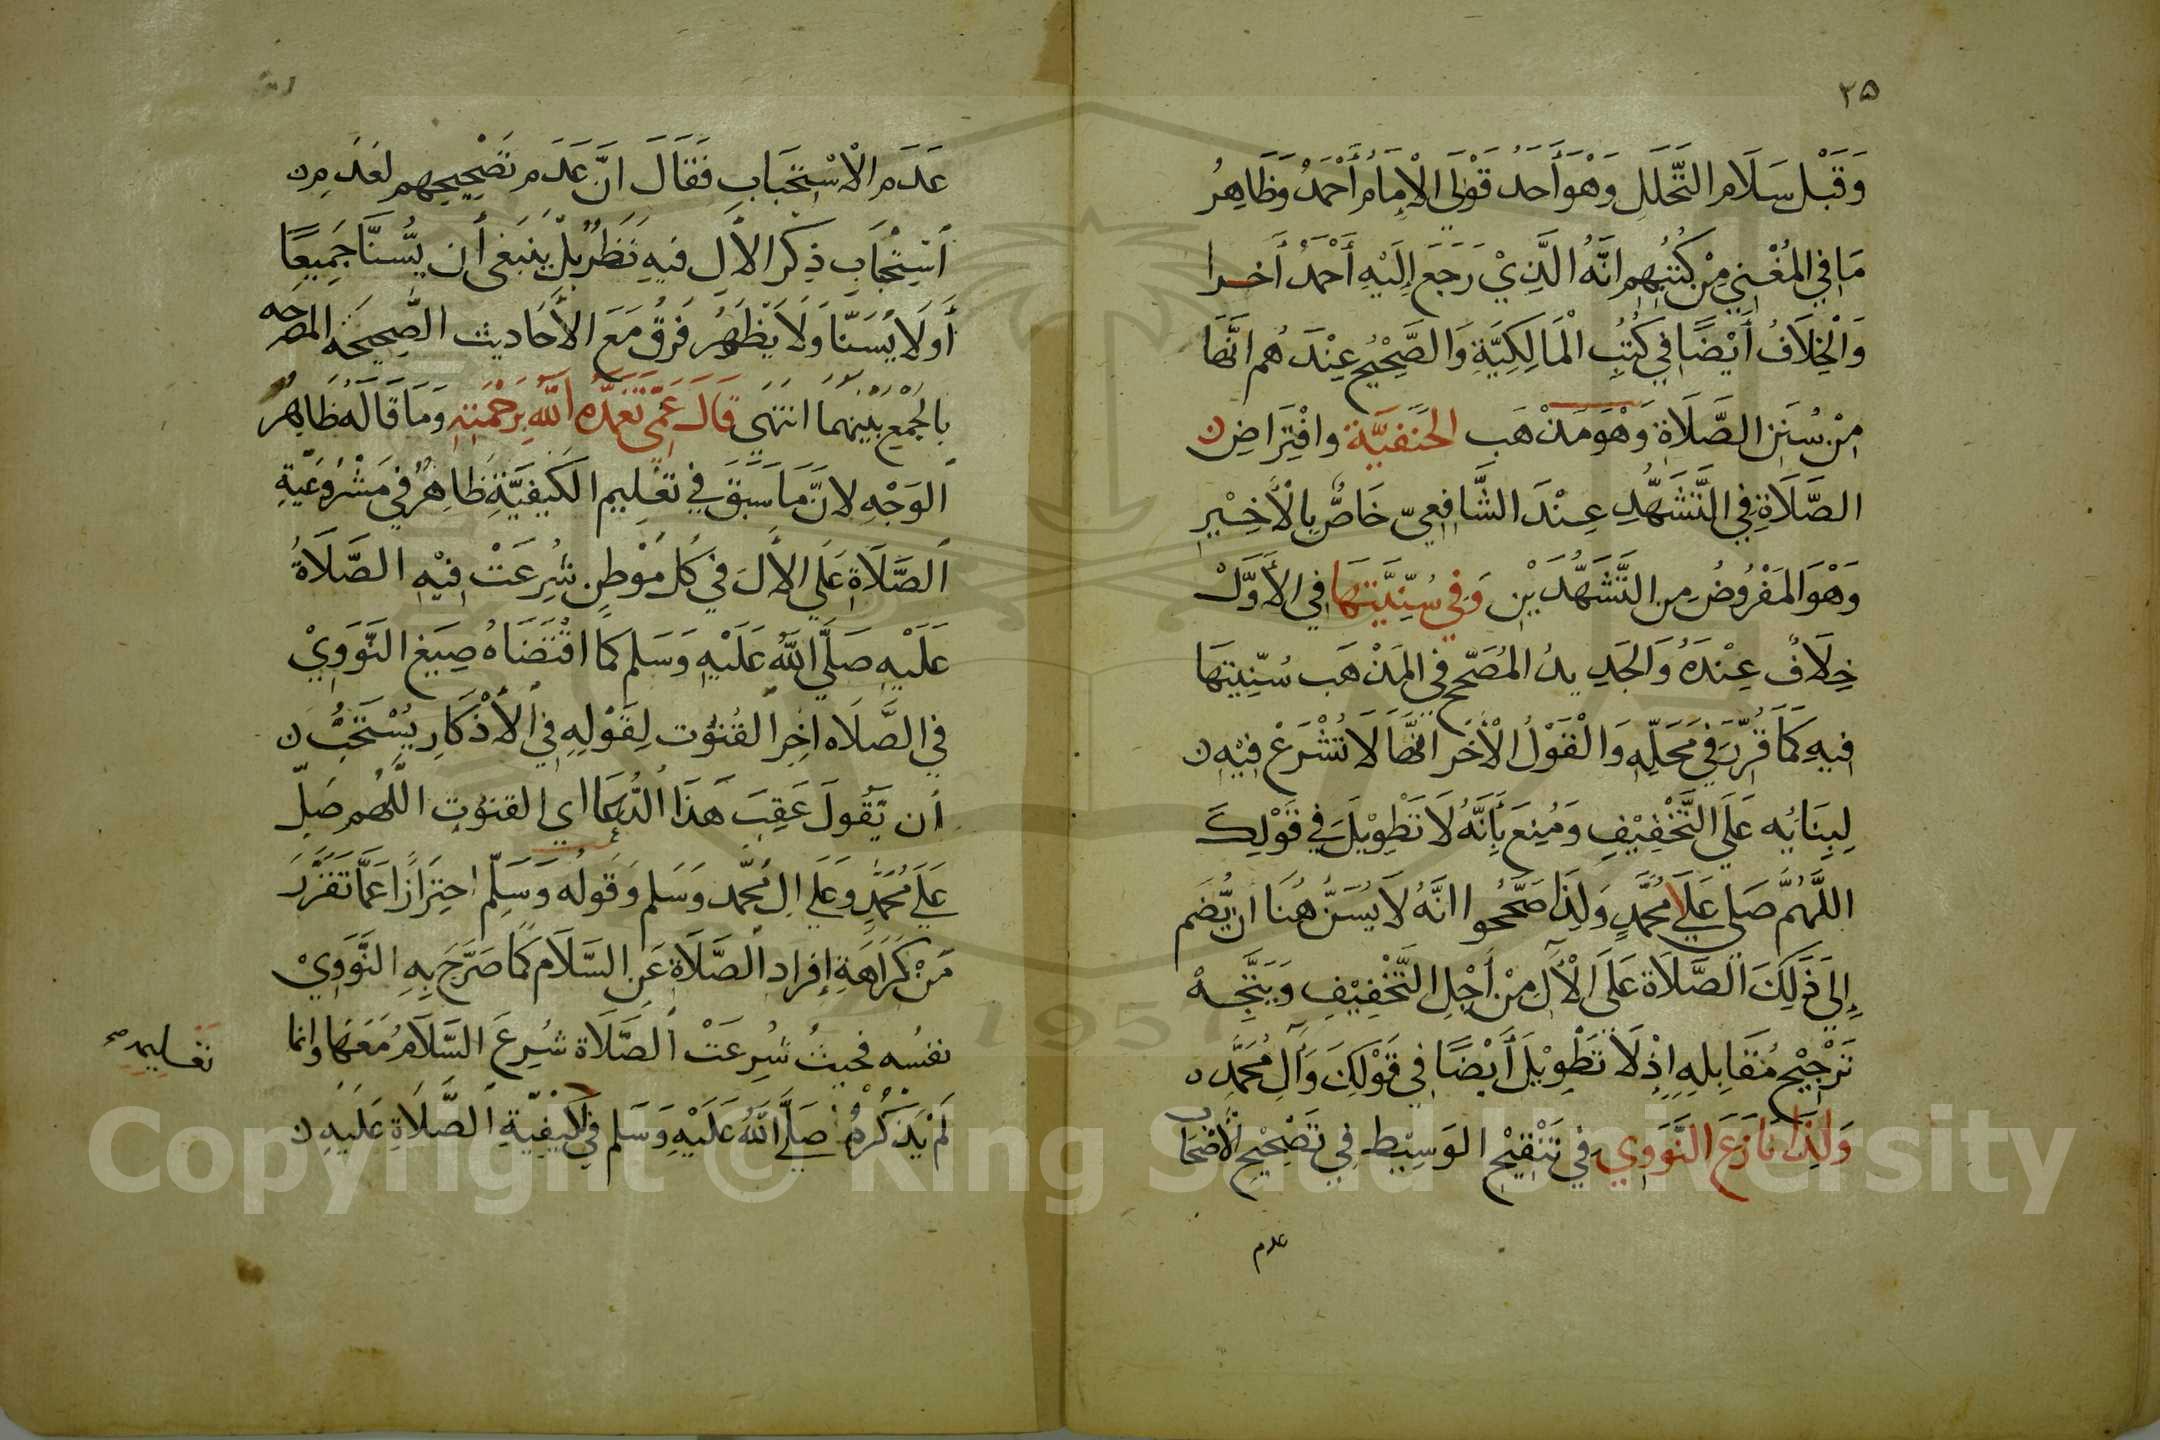 ٢٥
وَقَبْل سَلَام التَّحَلُّلِ وَهْوَ أَحَدُ قَوْلَي الْإِمَام أَحْمَدُ وَظَاهِرُ
مَا فِي المُغْنِي مِنْ كُتُبِهِم انَّهُ الَّذِيْ رَجَعَ إِلَيْهِ أَحْمَدُ أَخرا
وَالْخِلَافُ أَيْضًا فِي كُتُبِ الْمَالِكِيَّةِ وَالصَّحِيْحُ عِنْدَهُم انَّهَا
مِنْ سُنَنِ الصَّلَاةِ وَهْوَ مَذْهَب الحَنَفيَّة وافْتِرَاض
الصَّلَاةِ فِي التَّشَهُّدِ عِنْدَ الشَّافِعِيّ خَاصٌّ بِالْأَخِيْرِ
وَهْوَ المَفْرُوضُ مِن التَّشَهُّدَيْنِ وَفِي سُنِّيَّتِهَا فِي الأَوَّلْ
خِلَافٌ عِنْدَهُ وَالجَدِيدُ المُصَحّح فِي المَذْهَب سُنِّيتهَا
فِيهِ كَمَا قُرِّرَ فِي مَحَلِّهِ وَالْقَوْلُ الْأخَر انَّهَا لَا تُشْرَعْ فِيْهِ
لِبِنَائِهِ عَلَى التَّخْفِيْفِ وَمُنِعَ بِأَنَّهُ لَا تَطْوِيْلَ فِي قَوْلِكَ
اللَّهُمَّ صَلِي عَلَى مُحَمَّدٍ وَلِذَا صَحَّحُوا انَّهُ لَا يُسَنُّ هُنَا ان يُّضَم
إِلَى ذَلِكَ الصَّلَاة عَلَى الْآلِ مِنْ أَجْلِ التَّخْفِيْفِ وَيَتَّجِهْ
تَرْجِيْحُ مُقَابِلِهِ إِذْ لَا تَطْوِيْلَ أَيْضًا فِي قَوْلِكَ وَآلِ مُحَمَّدٍ
وَلِذَا نَازَعَ النَّوَوِي فِي تَنْقِيْحِ الوَسِيْط فِي تَصْحِيْح الأَصْحَاب
عدم
عَدَم الْاسْتِحْبَابِ فَقَالَ انَّ عَدَم تَصْحِيْحِهِم لعَدَمِ
اسْتِحْبَابِ ذِكْر الأٓلِ فِيهِ نَظَرٌ بَلْ يَنبَغِي أَن يُّسَنَّا جَمِيعًا
أَو لَا يُسَنَّا وَلَا يَظْهَرُ فَرْقٌ مَعَ الأَحَاديث الصَّحِيحَة المصرحه
بِالجَمْعِ بَيْنَهُمَا انتَهَى قَالَ عَمِّي تَغَمَّدَه اللَّهِ بِرَحْمَتِهِ وَمَا قَالَهُ ظَاهِرُ
الوَجْهِ لانَّ مَا سَبَقَ فِي تَعْلِيم الكَيفيَّة ظَاهِرٌ فِي مَشْرُوعيَّةِ
الصَّلَاةِ عَلَى الأٓلَ فِي كُلِ مَوْطِنٍ شُرِعَتْ فِيْهِ الصَّلَاةُ
عَلَيْهِ صَلَّى اللَّهُ عَلَيْهِ وَسَلم كَمَا اقْتَضَاهُ صِيَغ النَّوَوِيْ
فِي الصَّلَاه اخِر القُنُوْت لِقَوْلِهِ فِي الأَذْكَارِ يُسْتَحَبُّ
أن يَّقُولَ عَقِبَ هَذَا الدُّعَاءِ اي القنوْتِ اللَّهُم صَلِّ
عَلَى مُحَمَّدٍ وعَلَى الِ مُحَمَّد وَسَلم وَقَولُه وَسَلِّم احتِرَازًا عَمَّا تَقَرَّرَ
مَنْ كَرَاهَةِ إِفرَادِ الصَّلَاةِ عَنِ السَّلَام كَمَا صَرَّحَ بِهِ النَّوَوِيْ
نفسُه فحيثُ شُرِعَتْ الصَّلَاة شُرِعَ السَّلَامُ مَعَهَا وانما
لَمْ يَذْكُرْهُ صَلَّى اللَّهُ عَلَيْهِ وَسَلم فِي كَيْفِيَّةِ الصَّلَاةِ عَلَيْهِ
تعْليمه صح
1957
Copyright © King Saud University